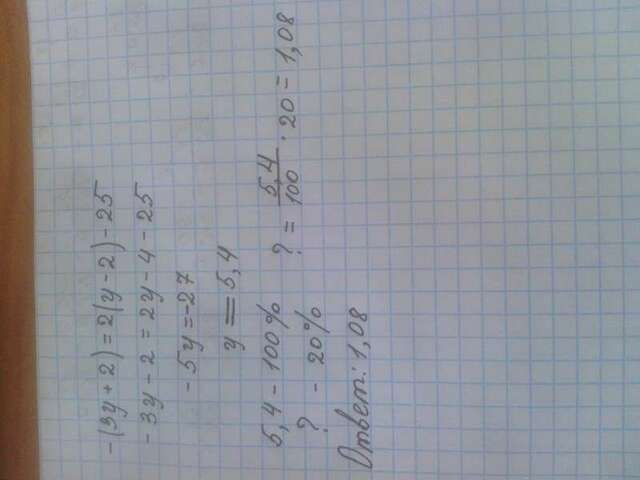 -(3y+2)=2(y-2)-25
-3y-2=2y-4-25
-5y=-27
y=5,4
5,4-100%
?-20%
?=5,4/100·20=1,08
Ответ:1,08